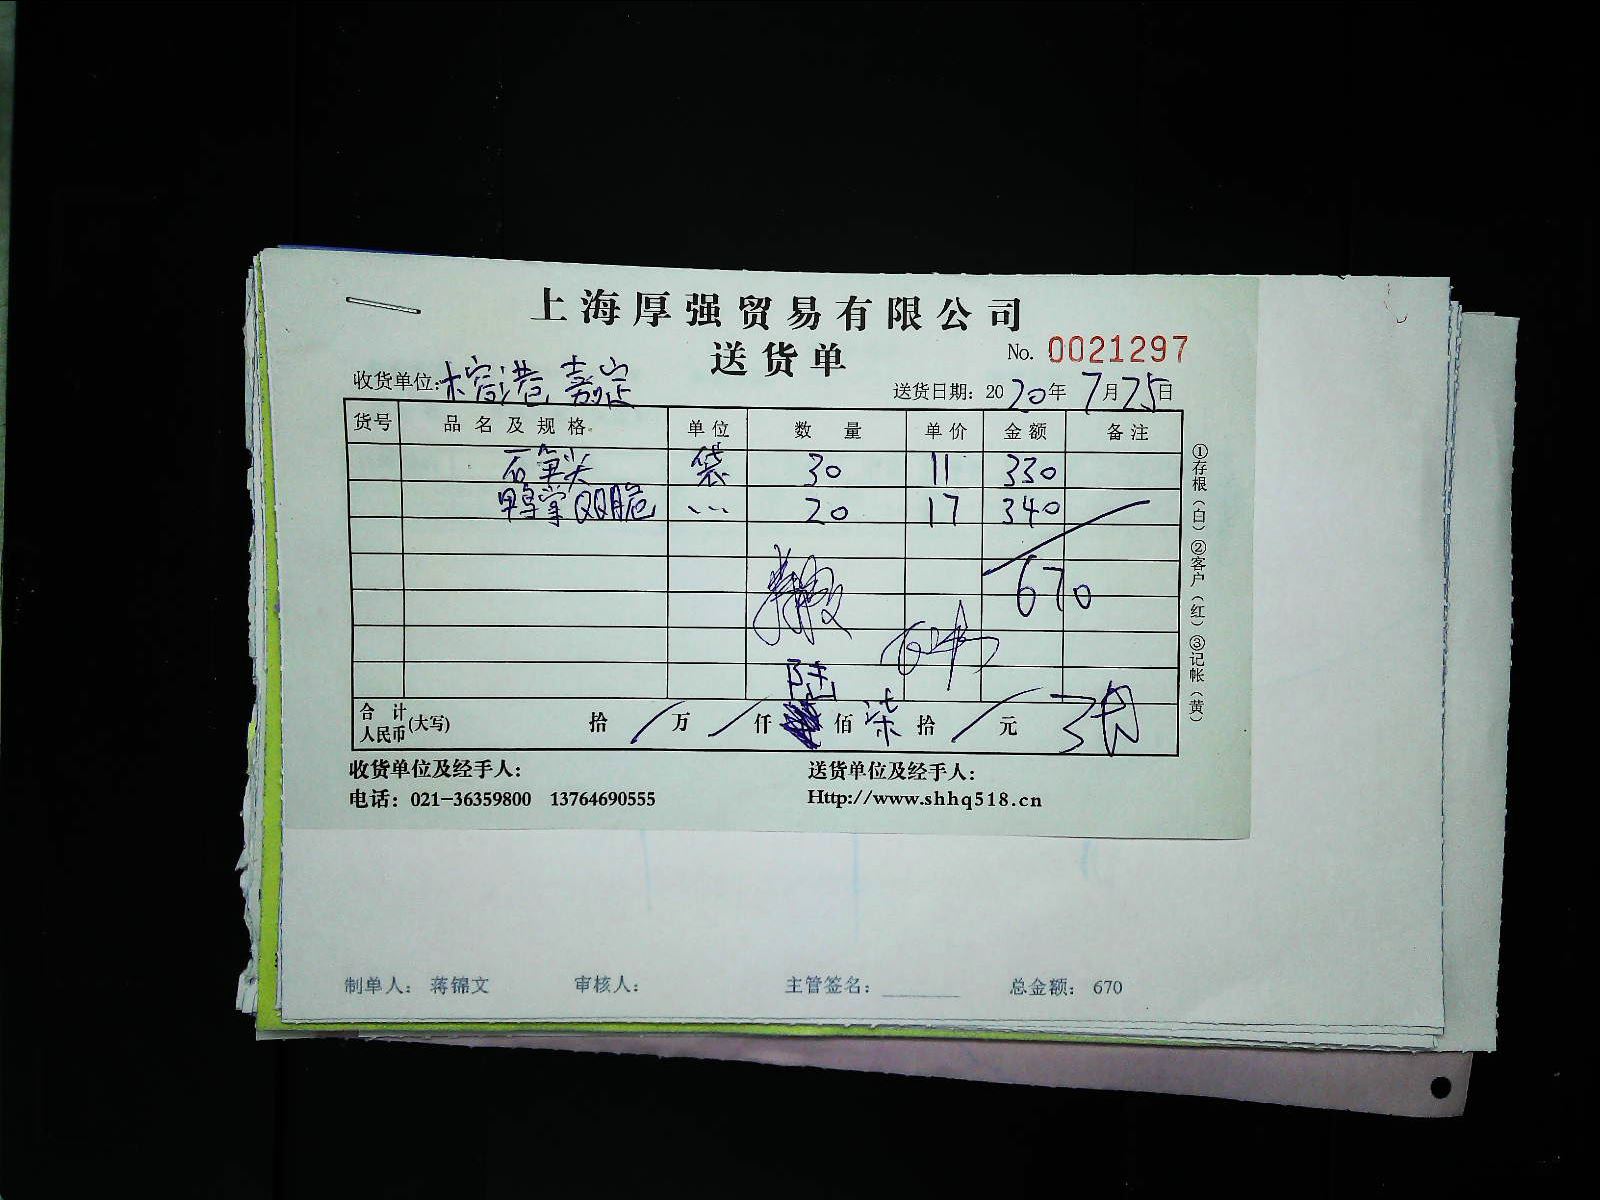 上海厚强贸易有限公司
送货单
No. 0021297
收货单位: 榕港 嘉定
送货日期: 2020年7月25日
货号 品名及规格 单位 数量 单价 金额 备注
石笋尖 袋 30 11 330
鸭掌双脆 ... 20 17 340
670
合计人民币(大写) 拾 / 万 / 仟 陆 佰 柒 拾 / 元
①存根(白) ②客户(红) ③记帐(黄)
收货单位及经手人:
送货单位及经手人:
电话: 021-36359800 13764690555
Http://www.shhq518.cn
制单人: 蒋锦文 审核人: 主管签名: ______ 总金额: 670